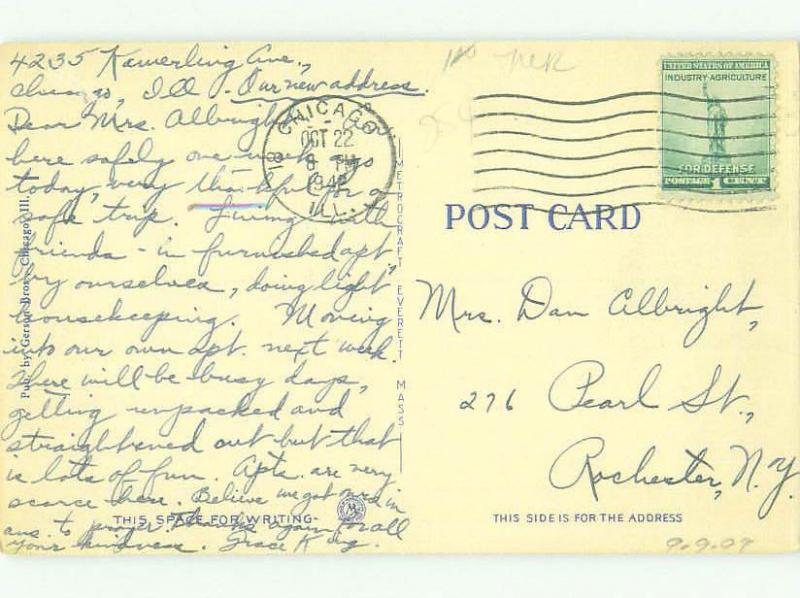 4235 Kamerling Ave.,
Chicago, Ill. - Our new address.
Dear Mrs. Albright,
here safely one week ago
today, very thankful for a
safe trip. Living with
friends - in furnished apt.
by ourselves, doing light
housekeeping. Moving
into our own apt. next week.
There will be busy days,
getting unpacked and
straightened out but that
is lots of fun. Apts. are very
scarce here. Believe we got ours in
ans. to prayer. Thanks again for all
your kindness. Grace
THIS SPACE FOR WRITING
Pub. by Gerson Bros., Chicago, Ill.
METROCRAFT EVERETT MASS
CHICAGO
OCT 22
8 PM
ILL.
UNITED STATES OF AMERICA
INDUSTRY AGRICULTURE
FOR DEFENSE
POSTAGE 1 CENT
POST CARD
Mrs. Dan Albright,
276 Pearl St.,
Rochester, N.Y.
THIS SIDE IS FOR THE ADDRESS
9-9-09